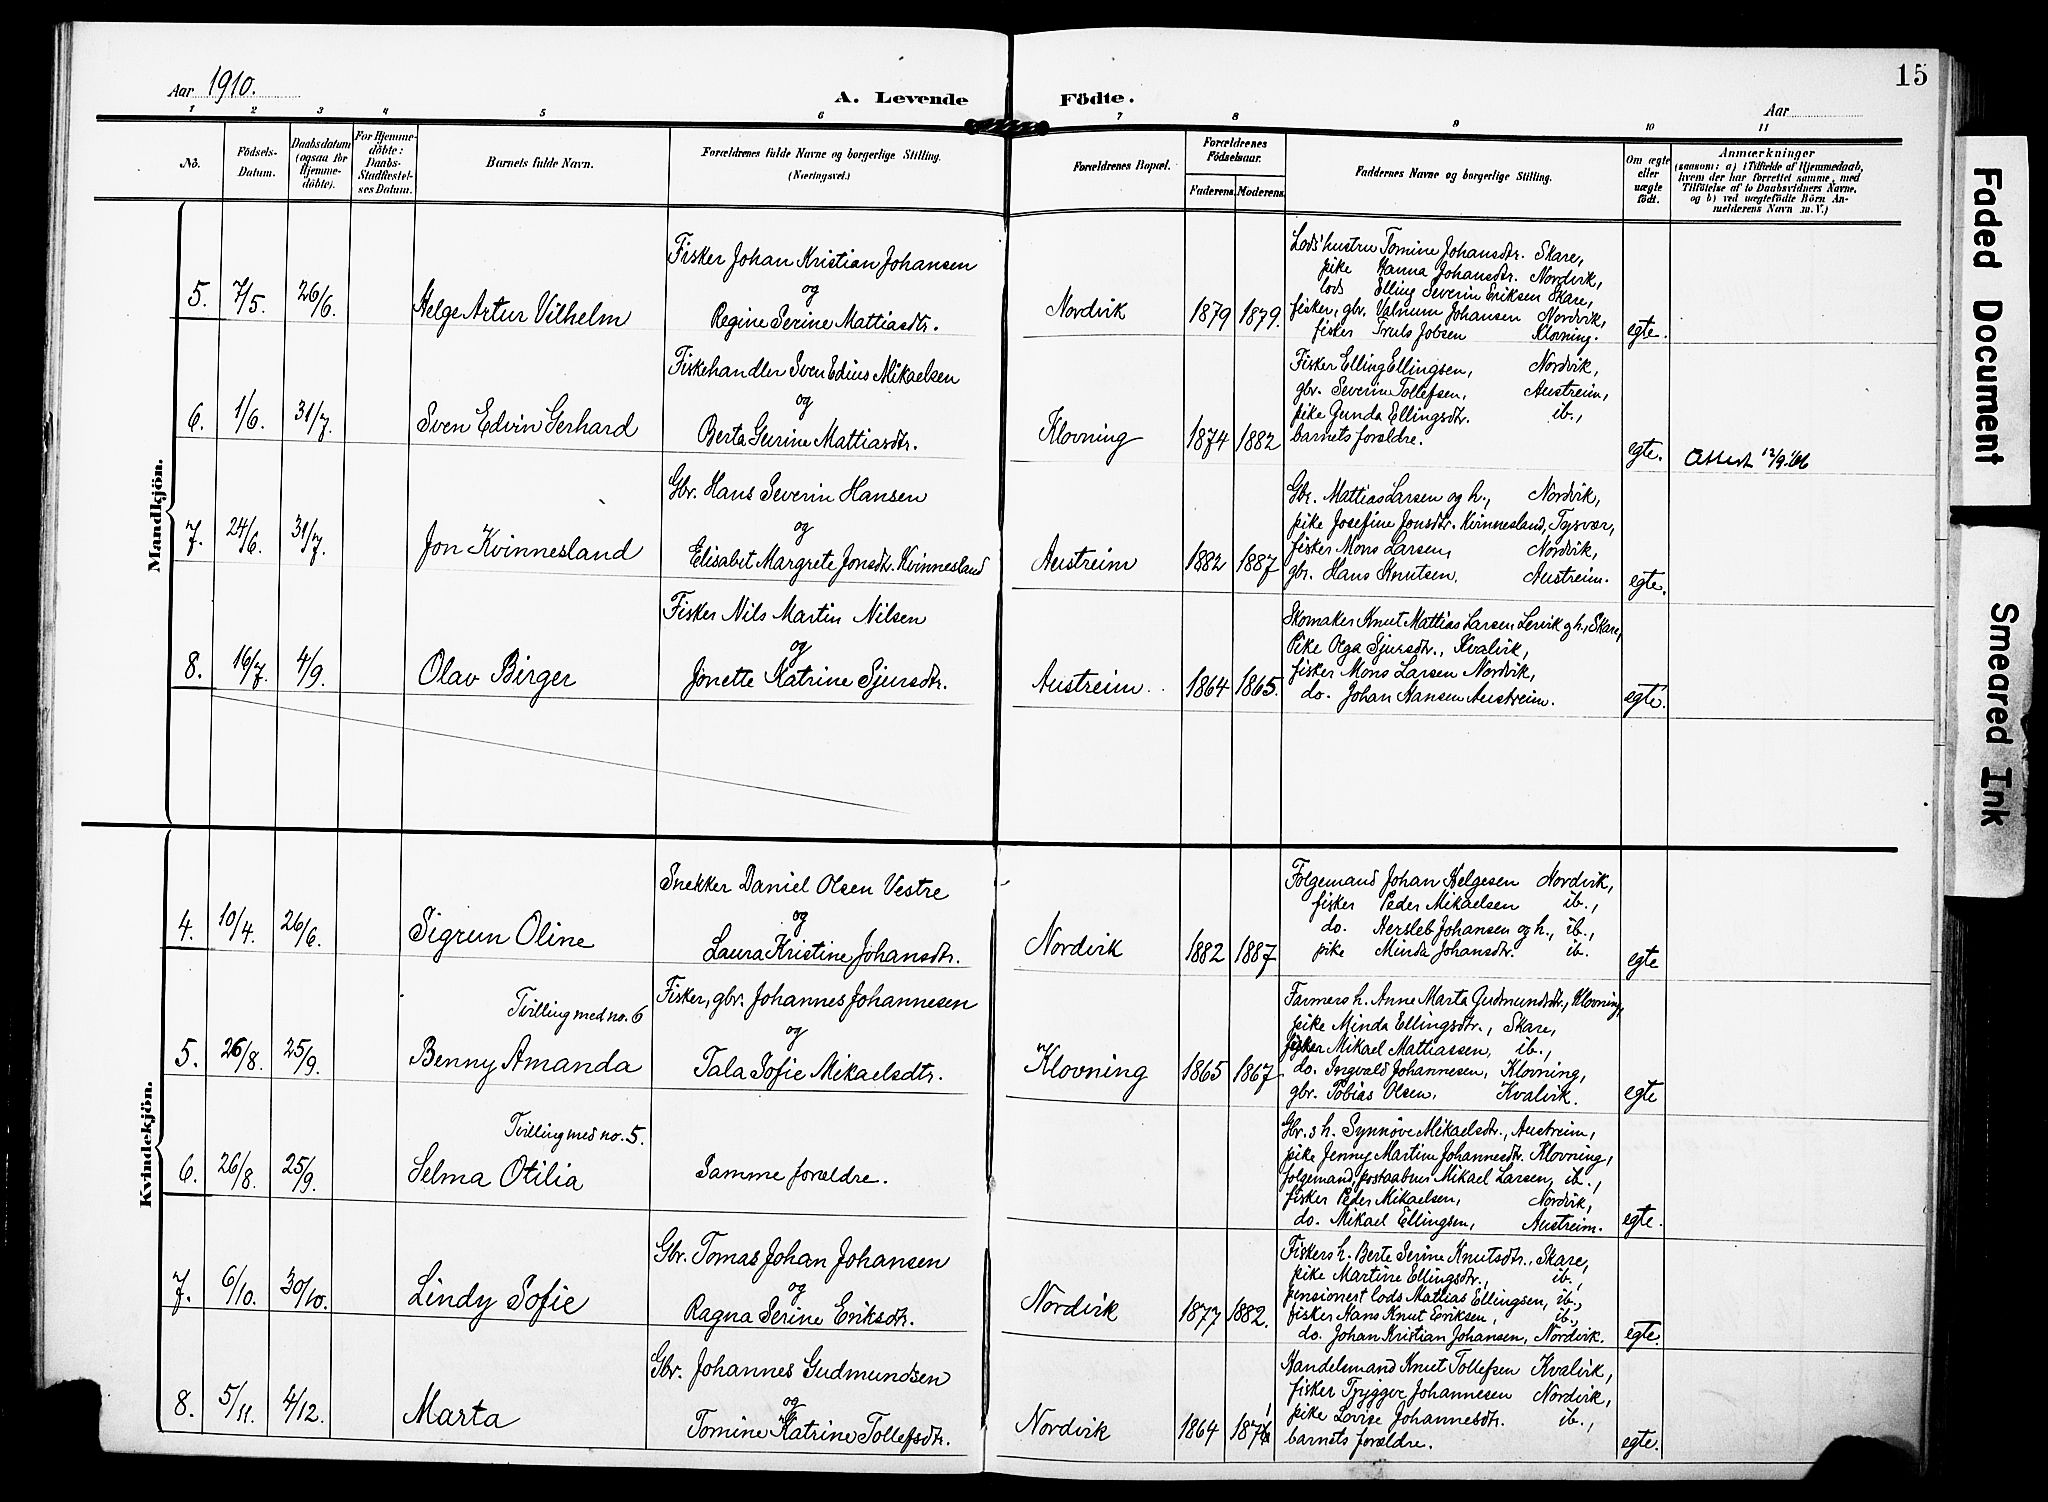 15
Aar 1910.
A. Levende Födte.
Aar
1 2 3 4 5 6 7 8 9 10 11
No.
Födsels-
Datum.
Daabsdatum
(ogsaa for
Hjemme-
döbte).
For Hjemme-
döbte:
Daabs-
Stadfæstel-
ses Datum.
Barnets fulde Navn.
Forældrenes fulde Navne og borgerlige Stilling.
(Næringsvei.)
Forældrenes Bopæl.
Forældrenes
Födselsaar.
Faderens. Moderens.
Faddernes Navne og borgerlige Stilling.
Om ægte
eller
uægte
födt.
Anmærkninger
(saasom: a) i Tilfælde af Hjemmedaab,
hvem der har forrettet samme, med
Tilföielse af to Daabsvidners Navne,
og b) ved uægtefödte Börn An-
melderens Navn m. V.)
Mandkjön.
5. 7/5. 26/6. Helge Artur Vilhelm
Fisker Johan Kristian Johansen
og
Regine Serine Mattiasdtr.
Nordvik 1879 1879.
Lods' hustru Tomine Johansdtr. Skare,
pike Hanna Johansdtr. Nordvik,
lods Elling Severin Eriksen Skare,
fisker, gbr. Valnum Johansen Nordvik,
fisker Truls Jobsen Klovning.
egte.
6. 1/6. 31/7. Sven Edvin Gerhard
Fiskehandler Sven Edius Mikaelsen
og
Berta Gurine Mattiasdtr.
Klovning 1874 1882
Fisker Elling Ellingsen, Nordvik,
gbr. Severin Tollefsen, Austreim,
pike Gunda Ellingsdtr. ib.,
barnets forældre.
egte.
Attest 12/9.'66
7. 24/6. 31/7. Jon Kvinnesland
Gbr. Hans Severin Hansen
og
Elisabet Margrete Jonsdtr. Kvinnesland
Austreim 1882 1887
Gbr. Mattias Larsen og h., Nordvik,
pike Josefine Jonsdtr. Kvinnesland, Tysvær,
fisker Mons Larsen, Nordvik,
gbr. Hans Knutsen, Austreim.
egte.
8. 16/7. 4/9. Olav Birger
Fisker Nils Martin Nilsen
og
Jonette Katrine Sjursdtr.
Austreim. 1864 1865.
Skomaker Knut Mattias Larsen Lervik og h., Skare,
Pike Olga Sjursdtr., Kvalvik,
fisker Mons Larsen Nordvik,
do. Johan Hansen Austreim.
egte.
Kvindekjön.
4. 10/4. 26/6. Sigrun Oline
Snekker Daniel Olsen Vestre
og
Laura Kristine Johansdtr.
Nordvik 1882 1887
Folgemand Johan Helgesen Nordvik,
fisker Peder Mikaelsen ib.,
do. Hersleb Johansen og h., ib.,
pike Minda Johansdtr. ib.
egte
Tvilling med no. 6
5. 26/8. 25/9. Benny Amanda
Fisker, gbr. Johannes Johannesen
og
Tala Sofie Mikaelsdtr.
Klovning 1865 1867
Farmers h. Anne Marta Gudmundsdtr., Klovning,
pike Minda Ellingsdtr., Skare,
fisker Mikael Mattiassen, ib.,
do. Ingvald Johannesen, Klovning,
gbr. Tobias Olsen, Kvalvik.
egte
Tvilling med no. 5.
6. 26/8. 25/9. Selma Otilia
Samme forældre.
Gbr.s h. Synnøve Mikaelsdtr., Austreim,
pike Jenny Martine Johannesdtr. Klovning,
folgemand, postaabner Mikael Larsen, ib.,
fisker Peder Mikaelsen, Nordvik,
do. Mikael Ellingsen, Austreim.
egte.
7. 6/10. 30/10. Lindy Sofie
Gbr. Tomas Johan Johansen
og
Ragna Serine Eriksdtr.
Nordvik 1877 1882.
Fiskers h. Berte Serine Knutsdtr., Skare,
pike Martine Ellingsdtr., ib.,
pensionert lods Mattias Ellingsen, ib.,
fisker Hans Knut Eriksen, ib.,
do. Johan Kristian Johansen, Nordvik.
egte.
8. 5/11. 4/12. Marta
Gbr. Johannes Gudmundsen
og
Tomine Katrine Tollefsdtr.
Nordvik 1864
Handelsmand Knut Tollefsen Kvalvik,
fisker Trygger Johannesen Nordvik,
pike Lovise Johannesdtr. ib.,
barnets forældre.
egte.
Faded Document
Smeared Ink